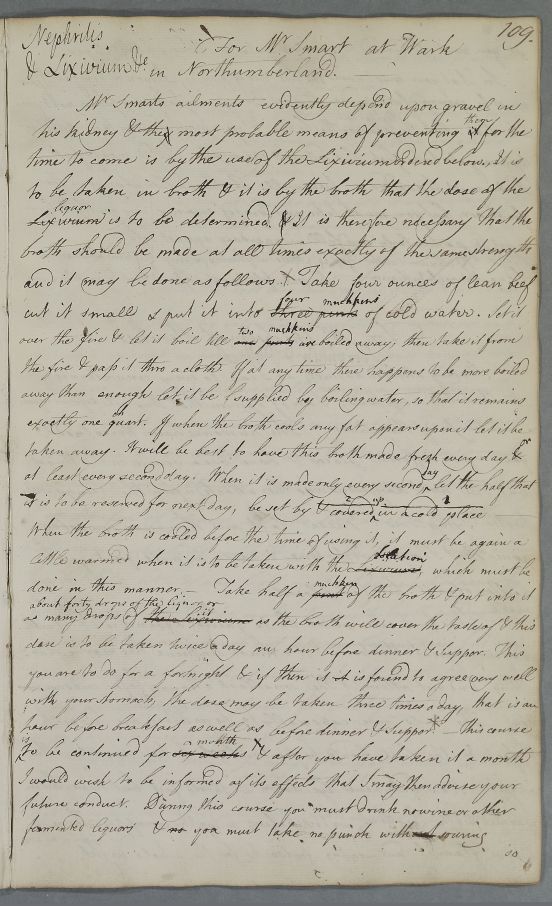 109.
Nephritis
& Lixivium &c
For Mr Smart at Wark
in Northumberland.
Mr Smarts ailments evidently depend upon gravel in
his kidney & the most probable means of preventing they it for the
time to come is by the use of the Lixivium ordered below. It is
to be taken in broth & it is by the broth that the dose of the
liquor
Lixivium is to be determined. & It is therefore necessary that the
broth should be made at all times exactly of the same strength
and it may be done as follows. Take four ounces of lean beef
four muchkins
cut it small & put it into three pints of cold water. Let it
two muchkins
over the fire & let it boil till one pints are boiled away, then take it from
the fire & pass it thro a cloth. If at any time there happens to be more boiled
away than enough let it be supplied by boiling water, so that it remains
exactly one quart. If when the broth cools any fat appears upon it let it be
taken away. It will be best to have this broth made fresh every day & or
day
at least every second day. When it is made only every second, let the half that
is to be reserved for next day, be set by & covered up in a cold place
2 1
When the broth is cooled before the time of using it, it must be again a
solution
little warmed when it is to be taken with the Lixivium, which must be
muchkin
done in this manner. Take half a pint of the broth & put into it
about forty drops of the liquor or
as many drops of the Lixivium as the broth will cover the taste of & this
dose is to be taken twice a day an hour before dinner & supper. This
you are to do for a fortnight & if then it it is found to agree very well
with your stomach, the dose may be taken three times a day, that is an
hour before breakfast as well as before dinner & supper. This course
is month
to be continued for six weeks & after you have taken it a month
I would wish to be informed of its effects that I may then advise your
future conduct. During this course you must drink no wine or other
fermented liquors & no you must take no punch without souring
so